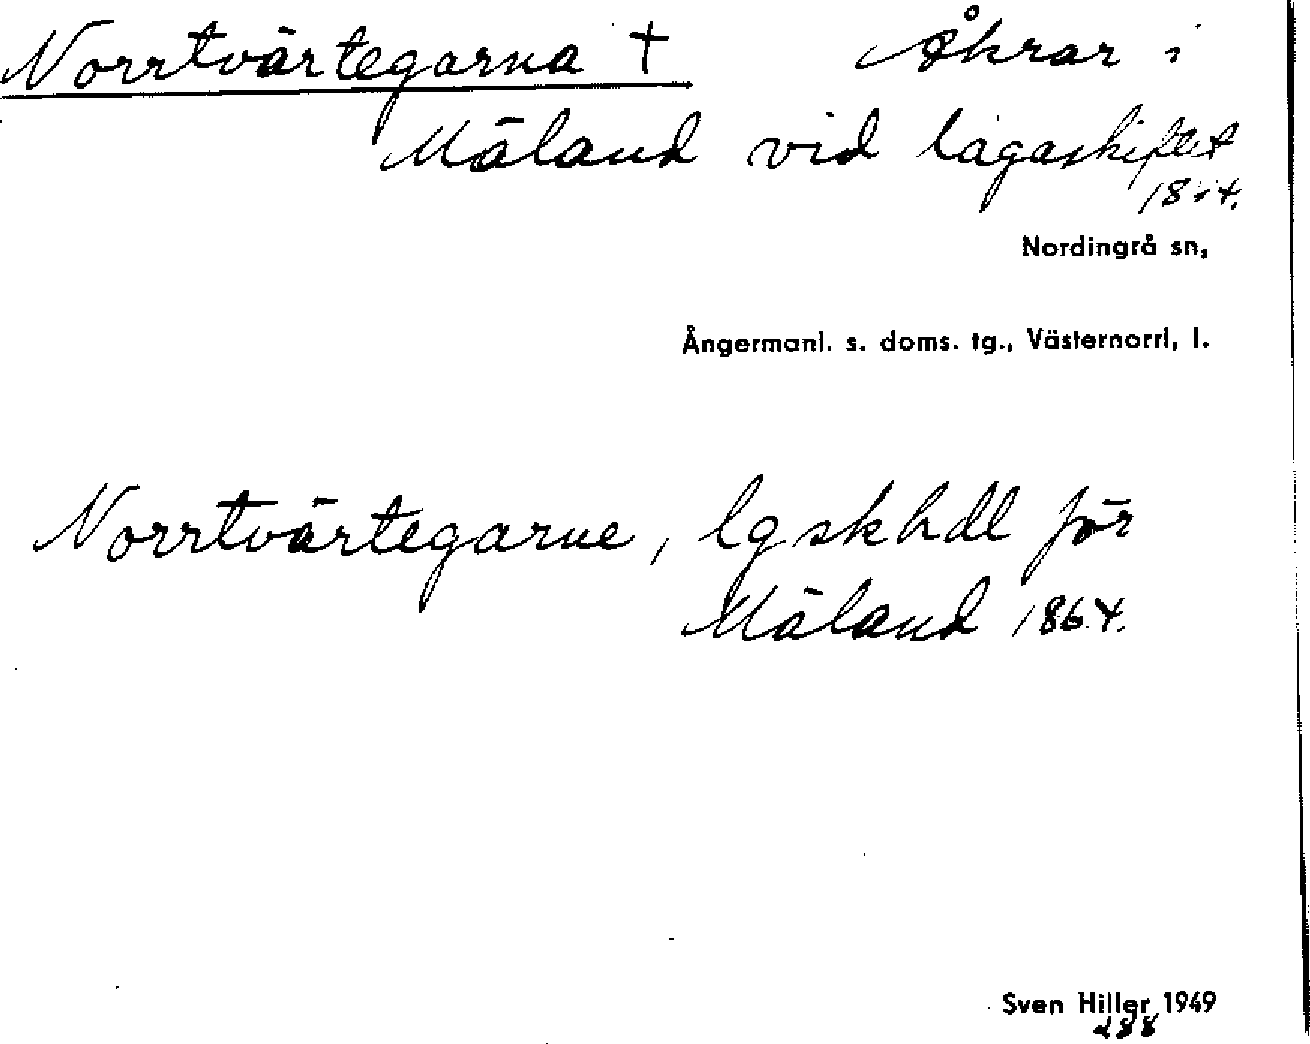 Norrtvärtegarna † Åkrar i
Mäland vid lagaskiftet
Nordingrå sn,
Ångermanl. s. doms. tg., Västernorrl, l.
Norrtvärtegarne, lgskhdl för
Mäland 1864.
Sven Hiller 1949
288